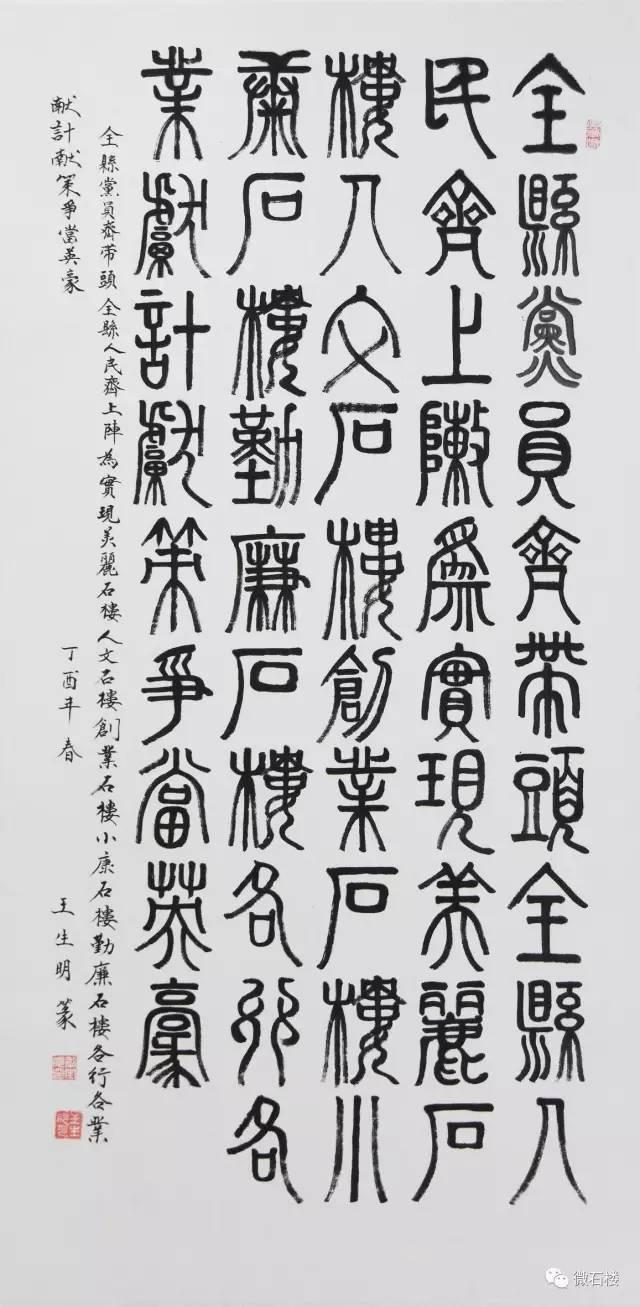 全縣黨員齊帶頭全縣人
民齊上陳為實現美麗石
樓人文石樓創業石樓小
康石樓勤廉石樓各行各
業獻計獻策爭當英豪
全縣黨員齊带頭全縣人民齊上陣為實現美麗石楼人文石楼創業石楼小康石楼勤廉石楼各行各業
献計献策爭當英豪
丁酉年春 王生明篆
微石楼